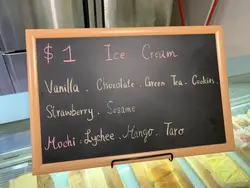 $1 Ice Cream
Vanilla . Chocolate . Green Tea . Cookies .
Strawberry . Sesame
Mochi : Lychee . Mango . Taro